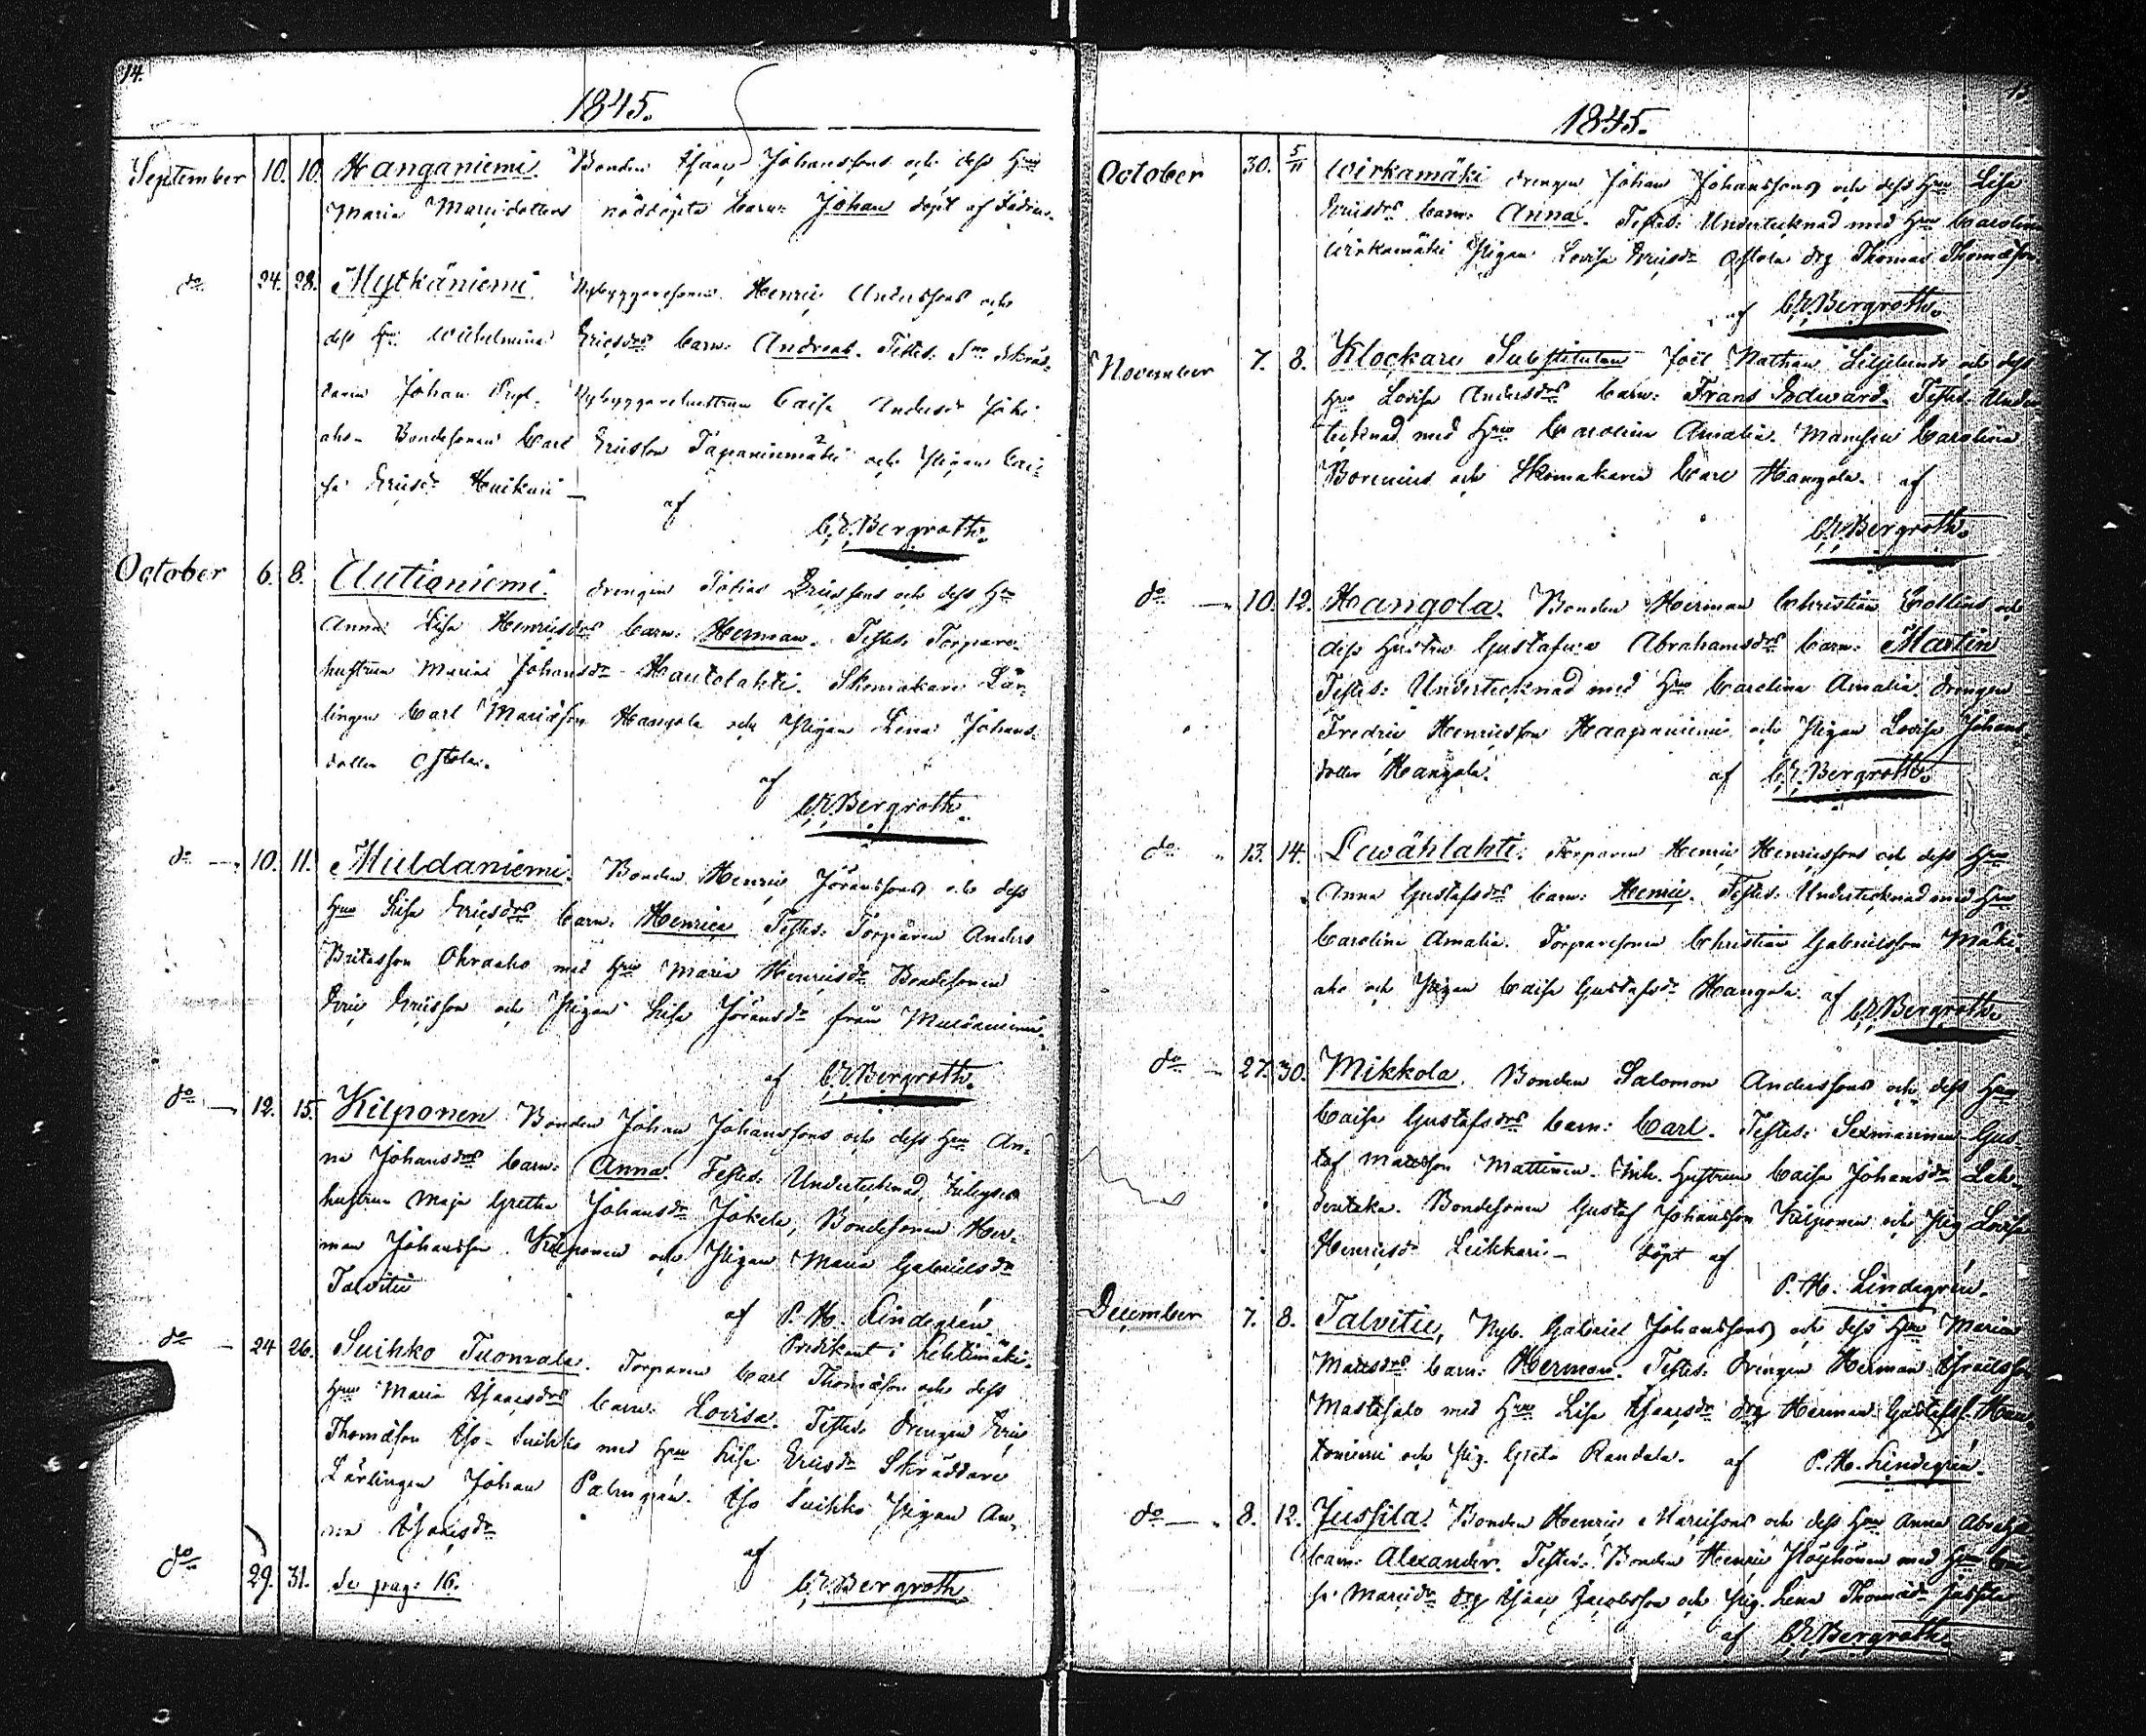 14.
1845.
September 10. 10. Hanganiemi. Bonden Isaac Johanssons och dess Hru
Maria Mariædotters nöddöpta barn: Johan döpt af
do 24. 28. Mytkäniemi Nybyggaresonen Henric Anderssons och
dess Hru Wilhelmina Ericsdrs barn: Andreas. Testes: Skräd-
daren Johan Nybyggarehustrun Caisa Andersdr
aho Bondesonen Carl Ericsson Tapaninmäki och Pigan Cai-
sa Ericsdr Huikuri af
C.E. Bergroth.
October 6. 8. Autioniemi. Drengen Tobias Ericssons och dess Hru
Anna Lisa Henricsdrs barn: Herman. Testes: Torpare-
hustrun Maria Johansdr Hautolahti. Skomakare Lär-
lingen Carl Mariæson Hangola och Pigan Lena Johans-
dotter Ostola.
af
C.E. Bergroth.
do 10. 11. Muldaniemi. Bonden Henric Jöranssons och dess
Hru Lisa Ericsdrs barn: Henrica Testes: Torparen Anders
Britasson Ohraaho med Hru Maria Henricsdr Bondesonen
Eric Ericsson och Pigan Lisa Jöransdr från Muldaniemi.
af C.E. Bergroth.
do 12. 15. Kilponen Bonden Johan Johanssons och dess Hru An-
na Johansdrs barn: Anna. Testes: Undertecknad,
hustrun Maja Gretha Johansdr Jokela, Bondesonen Her-
man Johansson Kilponen och Pigan Maria Gabrielsdr
Talvitie
af P. H. Lindegrén.
Predikant i Lehtimäki.
do 24 26. Suihko Tuomala. Torparen Carl Thomæson och dess
Hru Maria Isaacsdrs barn: Lovisa. Testes: Drengen Eric
Thomæson Iso-Suihko med Hru Lisa Ericsdr Skräddare
Lärlingen Johan Palmgrén. Iso Suihko Pigan An-
na Isacsdr
af
C.E. Bergroth.
do 29. 31. Se pag: 16.
1845.
October 30. 5/11 Wirkamäki Drengen Johan Johanssons och dess Hru Lisa
Ericsdrs barn: Anna. Testes: Undertecknad med Hru Carolina
Wirkamäki Pigan Lovisa Ericsdr Ostola drg Thomas Thomæson
af C.E. Bergroth.
November 7. 8. Klockare Substituten Joël Nathan Liljelunds och dess
Hru Lovisa Andersdrs barn: Frans Edward. Testes: Under-
tecknad med Hru Carolina Amalia. Mamsell Carolina
Borenius och Skomakaren Carl Hangola. af
C.E. Bergroth.
do 10. 12. Hangola. Bonden Herman Christian Collins och
dess Hustru Gustafva Abrahamsdrs barn: Martin
Testes: Undertecknad med Hru Carolina Amalia, Drengen
Fredric Henricsson Haapaniemi och Pigan Lovisa Johans-
dotter Hangola. af C.E. Bergroth.
do 13. 14. Lewählahti: Torparen Henric Henricssons och dess Hru
Anna Gustafsdrs barn: Henric. Testes: Undertecknad med Hru
Carolina Amalia. Torparesonen Christian Gabrielsson Mäki-
aho och Pigan Caisa Gustafsdr Hangola. af C.E. Bergroth.
do 27. 30. Mikkola. Bonden Salomon Anderssons och dess Hru
Caisa Gustafsdrs barn: Carl. Testes: Sexmannen Gus-
taf Mattsson Mattinen. Inh. Hustrun Caisa Johansdr Lah-
dentaka. Bondesonen Gustaf Johansson Kilponen och Pig. Lovisa
Henricsdr Leikkari - Döpt af
P. H. Lindegrén.
December 7. 8. Talvitie, Nyb. Gabriel Johanssons och dess Hru Maria
Mattsdrs barn: Herman. Testes: Drengen Herman Israelsson
Mastosalo med Hru Lisa Isaacsdr drg Herman Gustafss. Hau-
toniemi och Pig. Greta Randala. af P. H. Lindegrén.
do 8. 12. Jussila. Bonden Henric Mariæsons och dess Hru Anna
barn: Alexander. Testes: Bonden Henric Höyhönen med Hru Cai-
sa Mariædr drg Isaac Jacobsson och Pig. Lena Thomædr Jussila
af C.E. Bergroth.